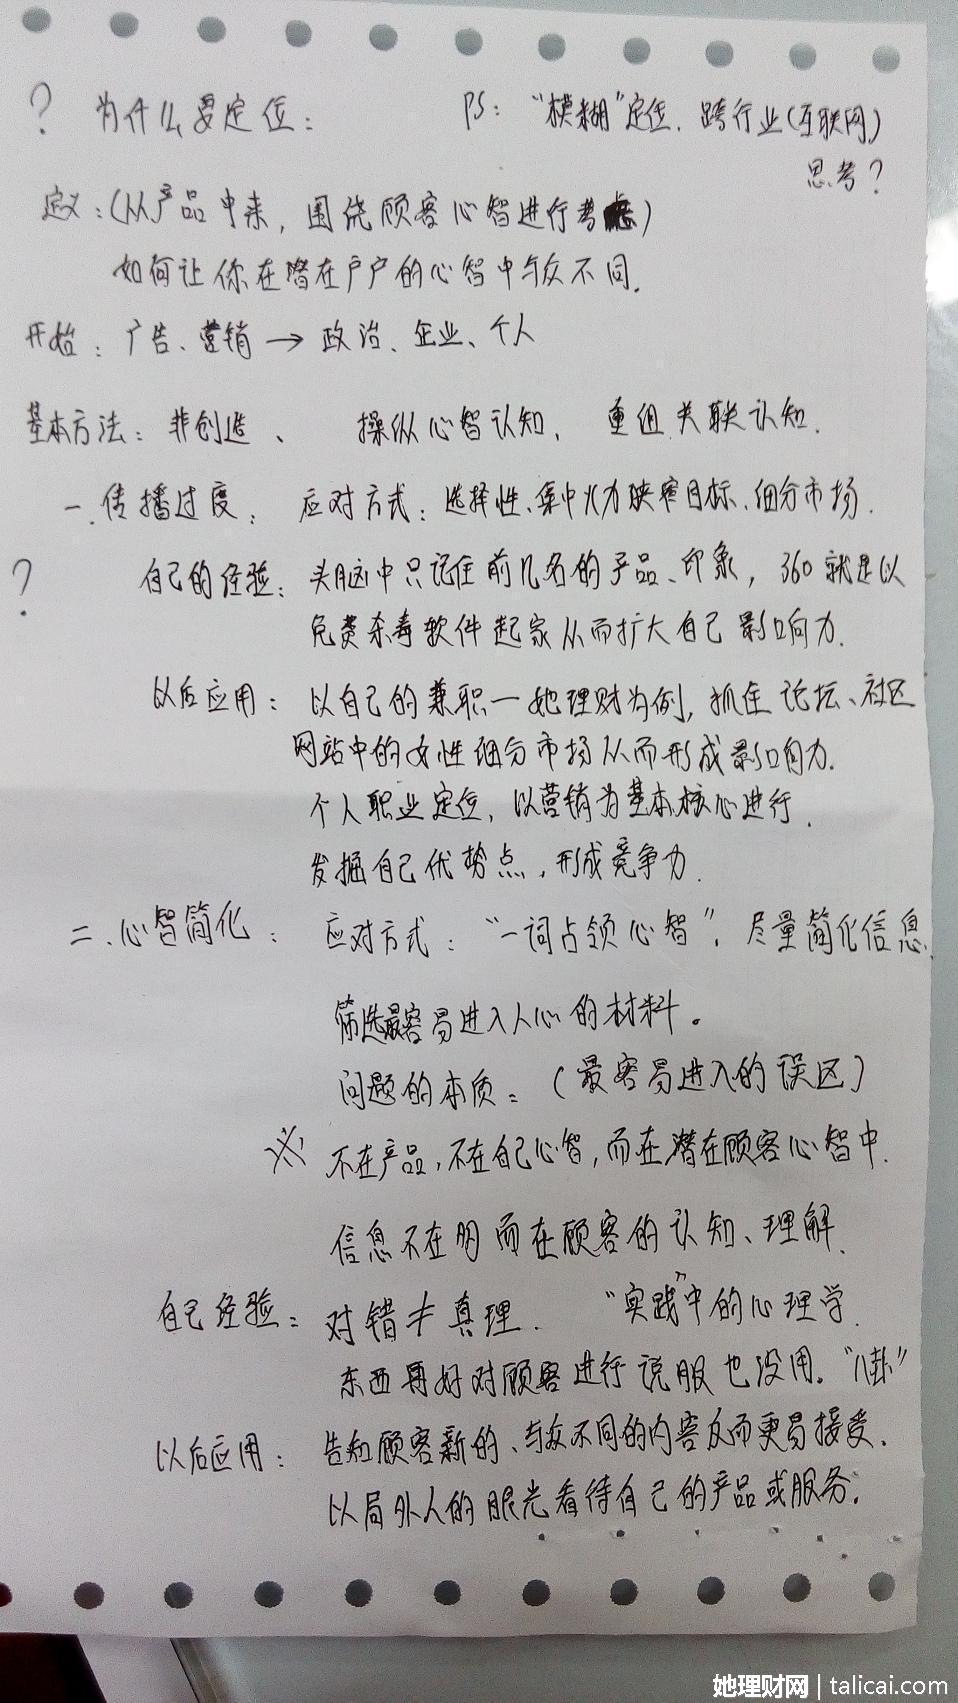 ? 为什么要定位：
PS：“模糊”定位．跨行业(互联网)
思考？
定义：(从产品中来，围绕顾客心智进行考虑)
如何让你在潜在户户的心智中与众不同．
开始：广告、营销→政治、企业、个人
基本方法：非创造、 操纵心智认知， 重组关联认知．
一．传播过度： 应对方式：选择性、集中火力狭窄目标、细分市场．
? 自己的经验：头脑中只记住前几名的产品、印象，360就是以
免费杀毒软件起家从而扩大自己影响力．
以后应用：以自己的兼职一她理财为例，抓住论坛、社区
网站中的女性细分市场从而形成影响力．
个人职业定位，以营销为基本核心进行．
发掘自己优势点，形成竞争力．
二．心智简化： 应对方式：“一词占领心智”．尽量简化信息．
筛选最容易进入人心的材料。
问题的本质：(最容易进入的误区)
※ 不在产品，不在自己心智，而在潜在顾客心智中．
信息不在 而在顾客的认知、理解．
自己经验：对错≠真理． “实践”中的心理学．
东西再好对顾客进行说服也没用．“八卦”
以后应用：告知顾客新的、与众不同的内容反而更易接受．
以局外人的眼光看待自己的产品或服务．
她理财网|talicai.com